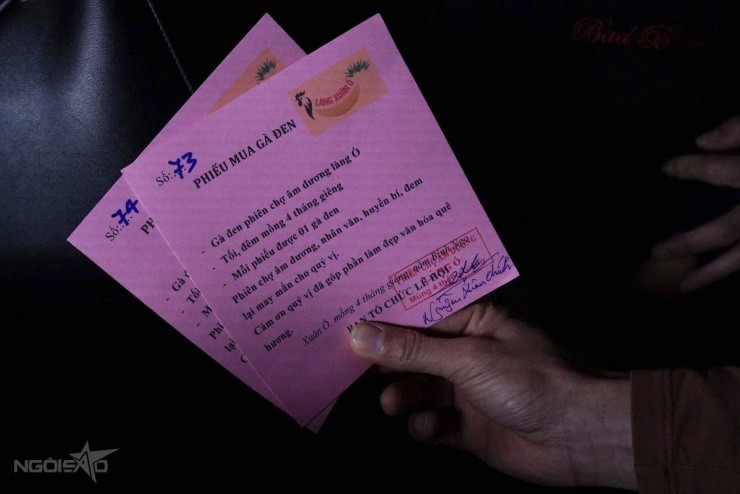 Bad
LÀNG XUÂN Ổ
Số: 73
PHIẾU MUA GÀ ĐEN
- Gà đen phiên chợ âm dương làng Ó
- Tối, đêm mồng 4 tháng giêng
- Mỗi phiếu được 01 gà đen
Phiên chợ âm dương, nhân văn, huyền bí, đem
lại may mắn cho quý vị.
Cảm ơn quý vị đã góp phần làm đẹp văn hóa quê
hương.
Xuân Ổ, mồng 4 tháng giêng năm Bính Ngọ
BAN TỔ CHỨC LỄ HỘI
Mùng 4 th
Nguyễn Xuân
Số: 74
PHI
- Gà
- Tối
- Mỗ
Phi
lại
Cả
hư
NGÔISAO